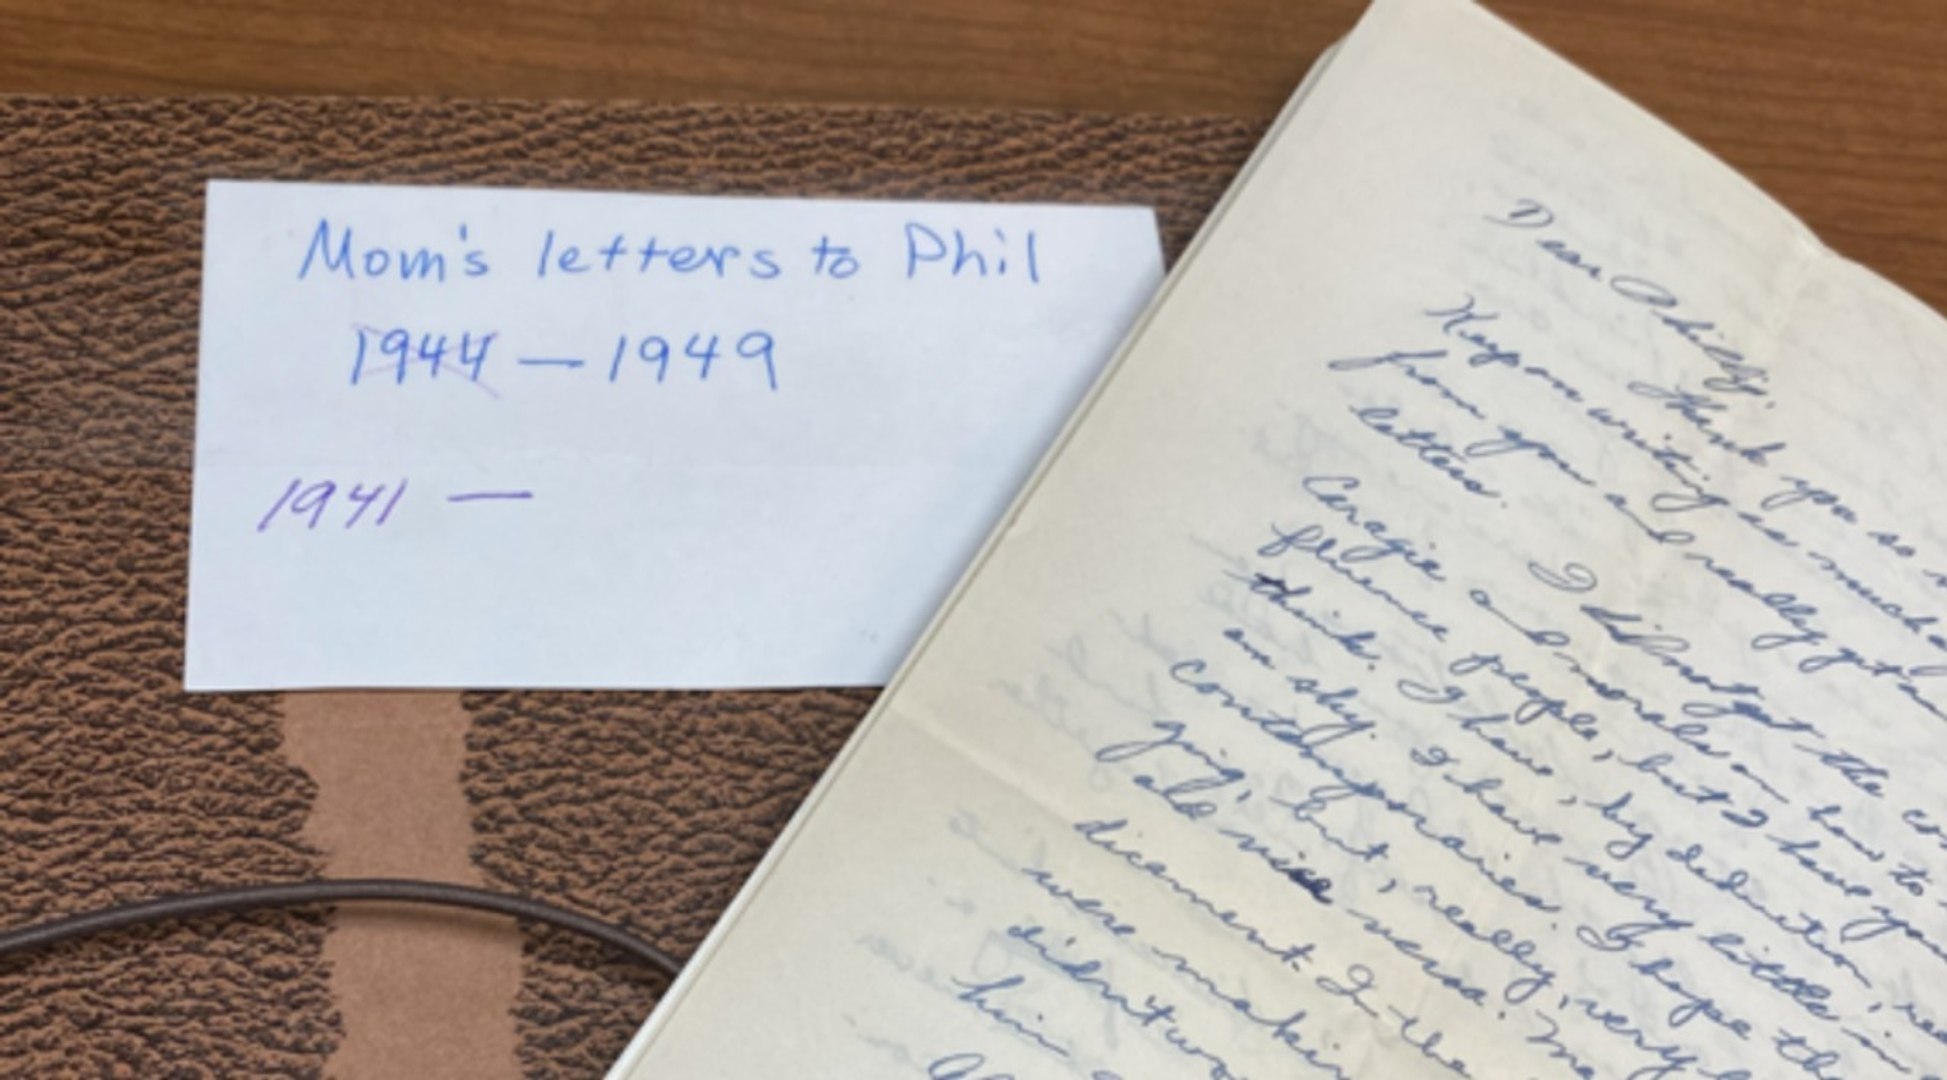 Mom's letters to Phil
1944 — 1949
1941 —
Dear Philly,
Thank you so
Keep on writing as much
from you and really get
letters.
I did not get the
Caragie and morals on how to
fluence people, but I have you
think. I have, by deduction,
am shy. I have very little in
contemporaries. I hope
going, but, really, very
ale vise versa.
dicament. I the
were making
didn't
him